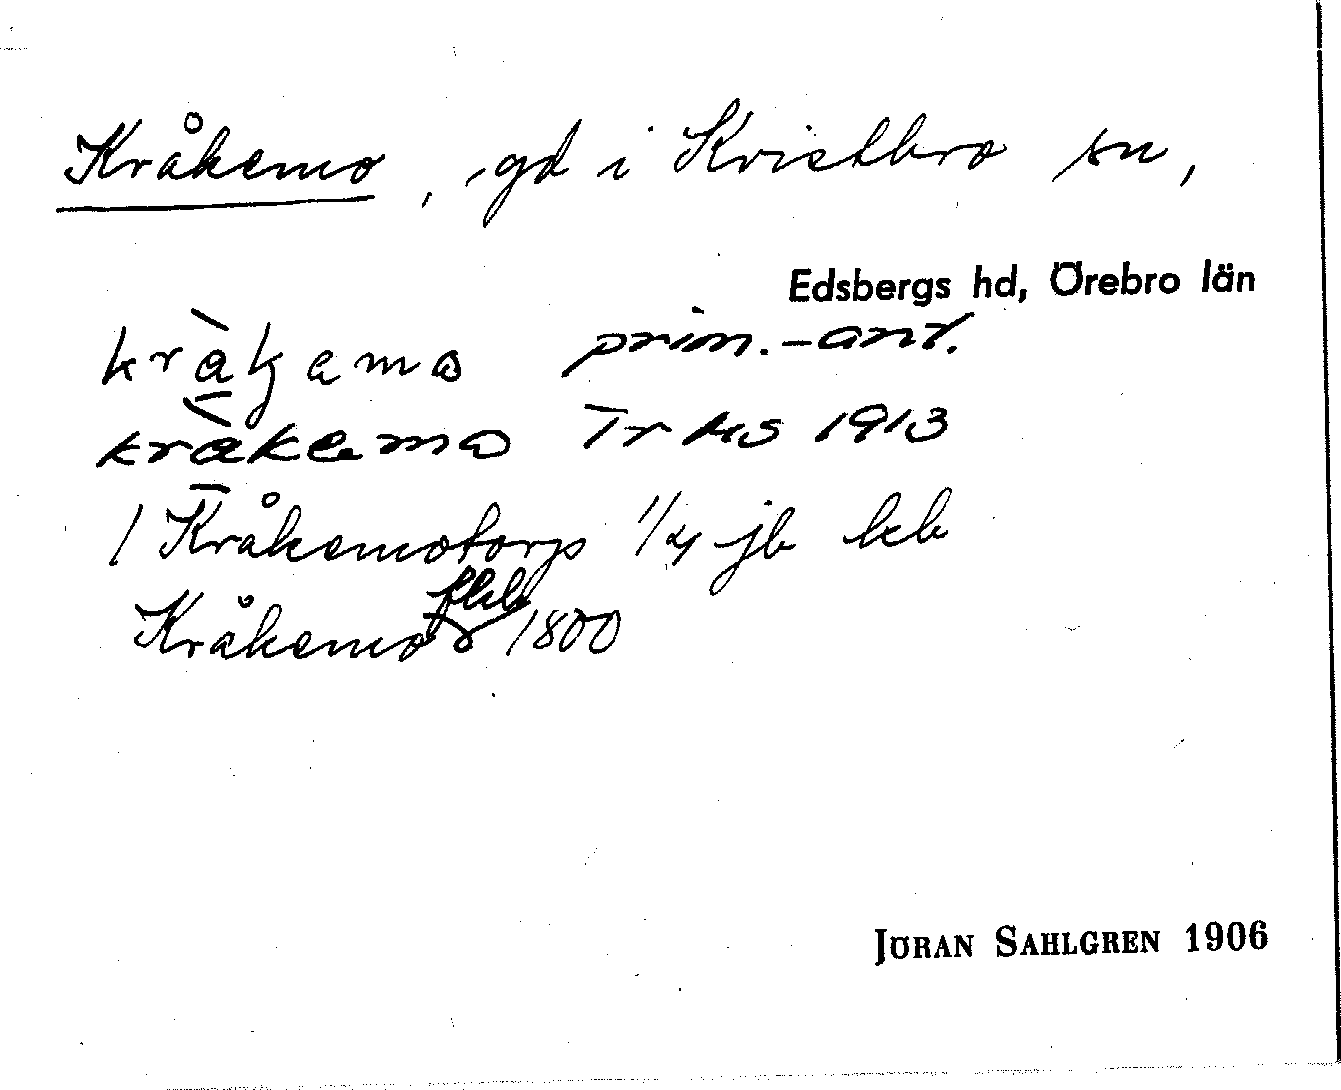 Kråkemo, gd i Kvistbro sn,
Edsbergs hd, Örebro län
kràkemo prim.-ant.
kràkemo Tr hs 1913
/ Kråkemotorp 1/4 jb kb
Kråkemo flkb 1800
JÖRAN SAHLGREN 1906